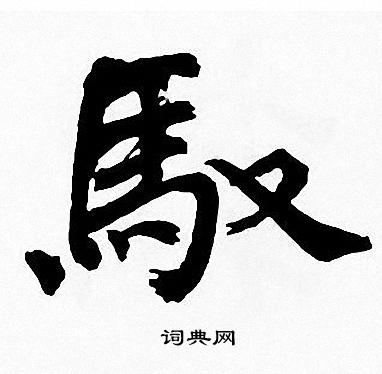 馭
词典网